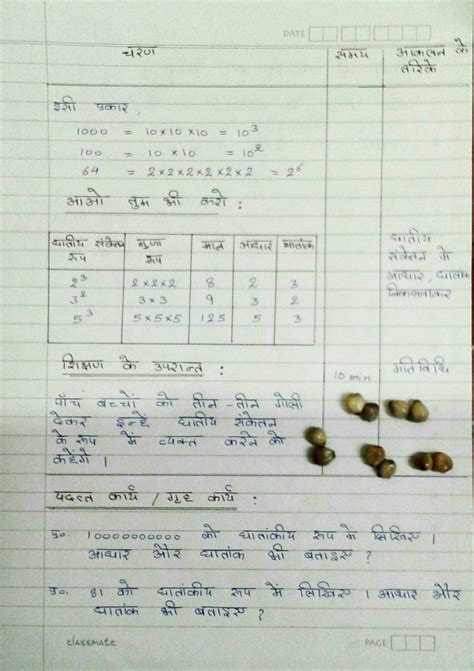 DATE
चरण समय आकलन के
तरिके
इसी प्रकार,
1000 = 10×10×10 = 10³
100 = 10×10 = 10²
64 = 2×2×2×2×2×2 = 2⁶
आओ तुम भी करो :
घातीय संकेतन गुणा मान आधार घातांक
रूप रूप
2³ 2×2×2 8 2 3
3² 3×3 9 3 2
5³ 5×5×5 125 5 3
घातीय
संकेतन में
आधार, घातांक
निकलवाकर
शिक्षण के उपरान्त : 10 min गतिविधि
पाँच बच्चों को तीन-तीन गोली
देकर इन्हें घातीय संकेतन
के रूप में व्यक्त करने को
कहेंगे ।
प्रदत्त कार्य / गृह कार्य :
प्र०. 10000000000 को घातांकीय रूप में लिखिए ।
आधार और घातांक भी बताइए ?
प्र०. 81 को घातांकीय रूप में लिखिए । आधार और
घातांक भी बताइए ?
classmate PAGE